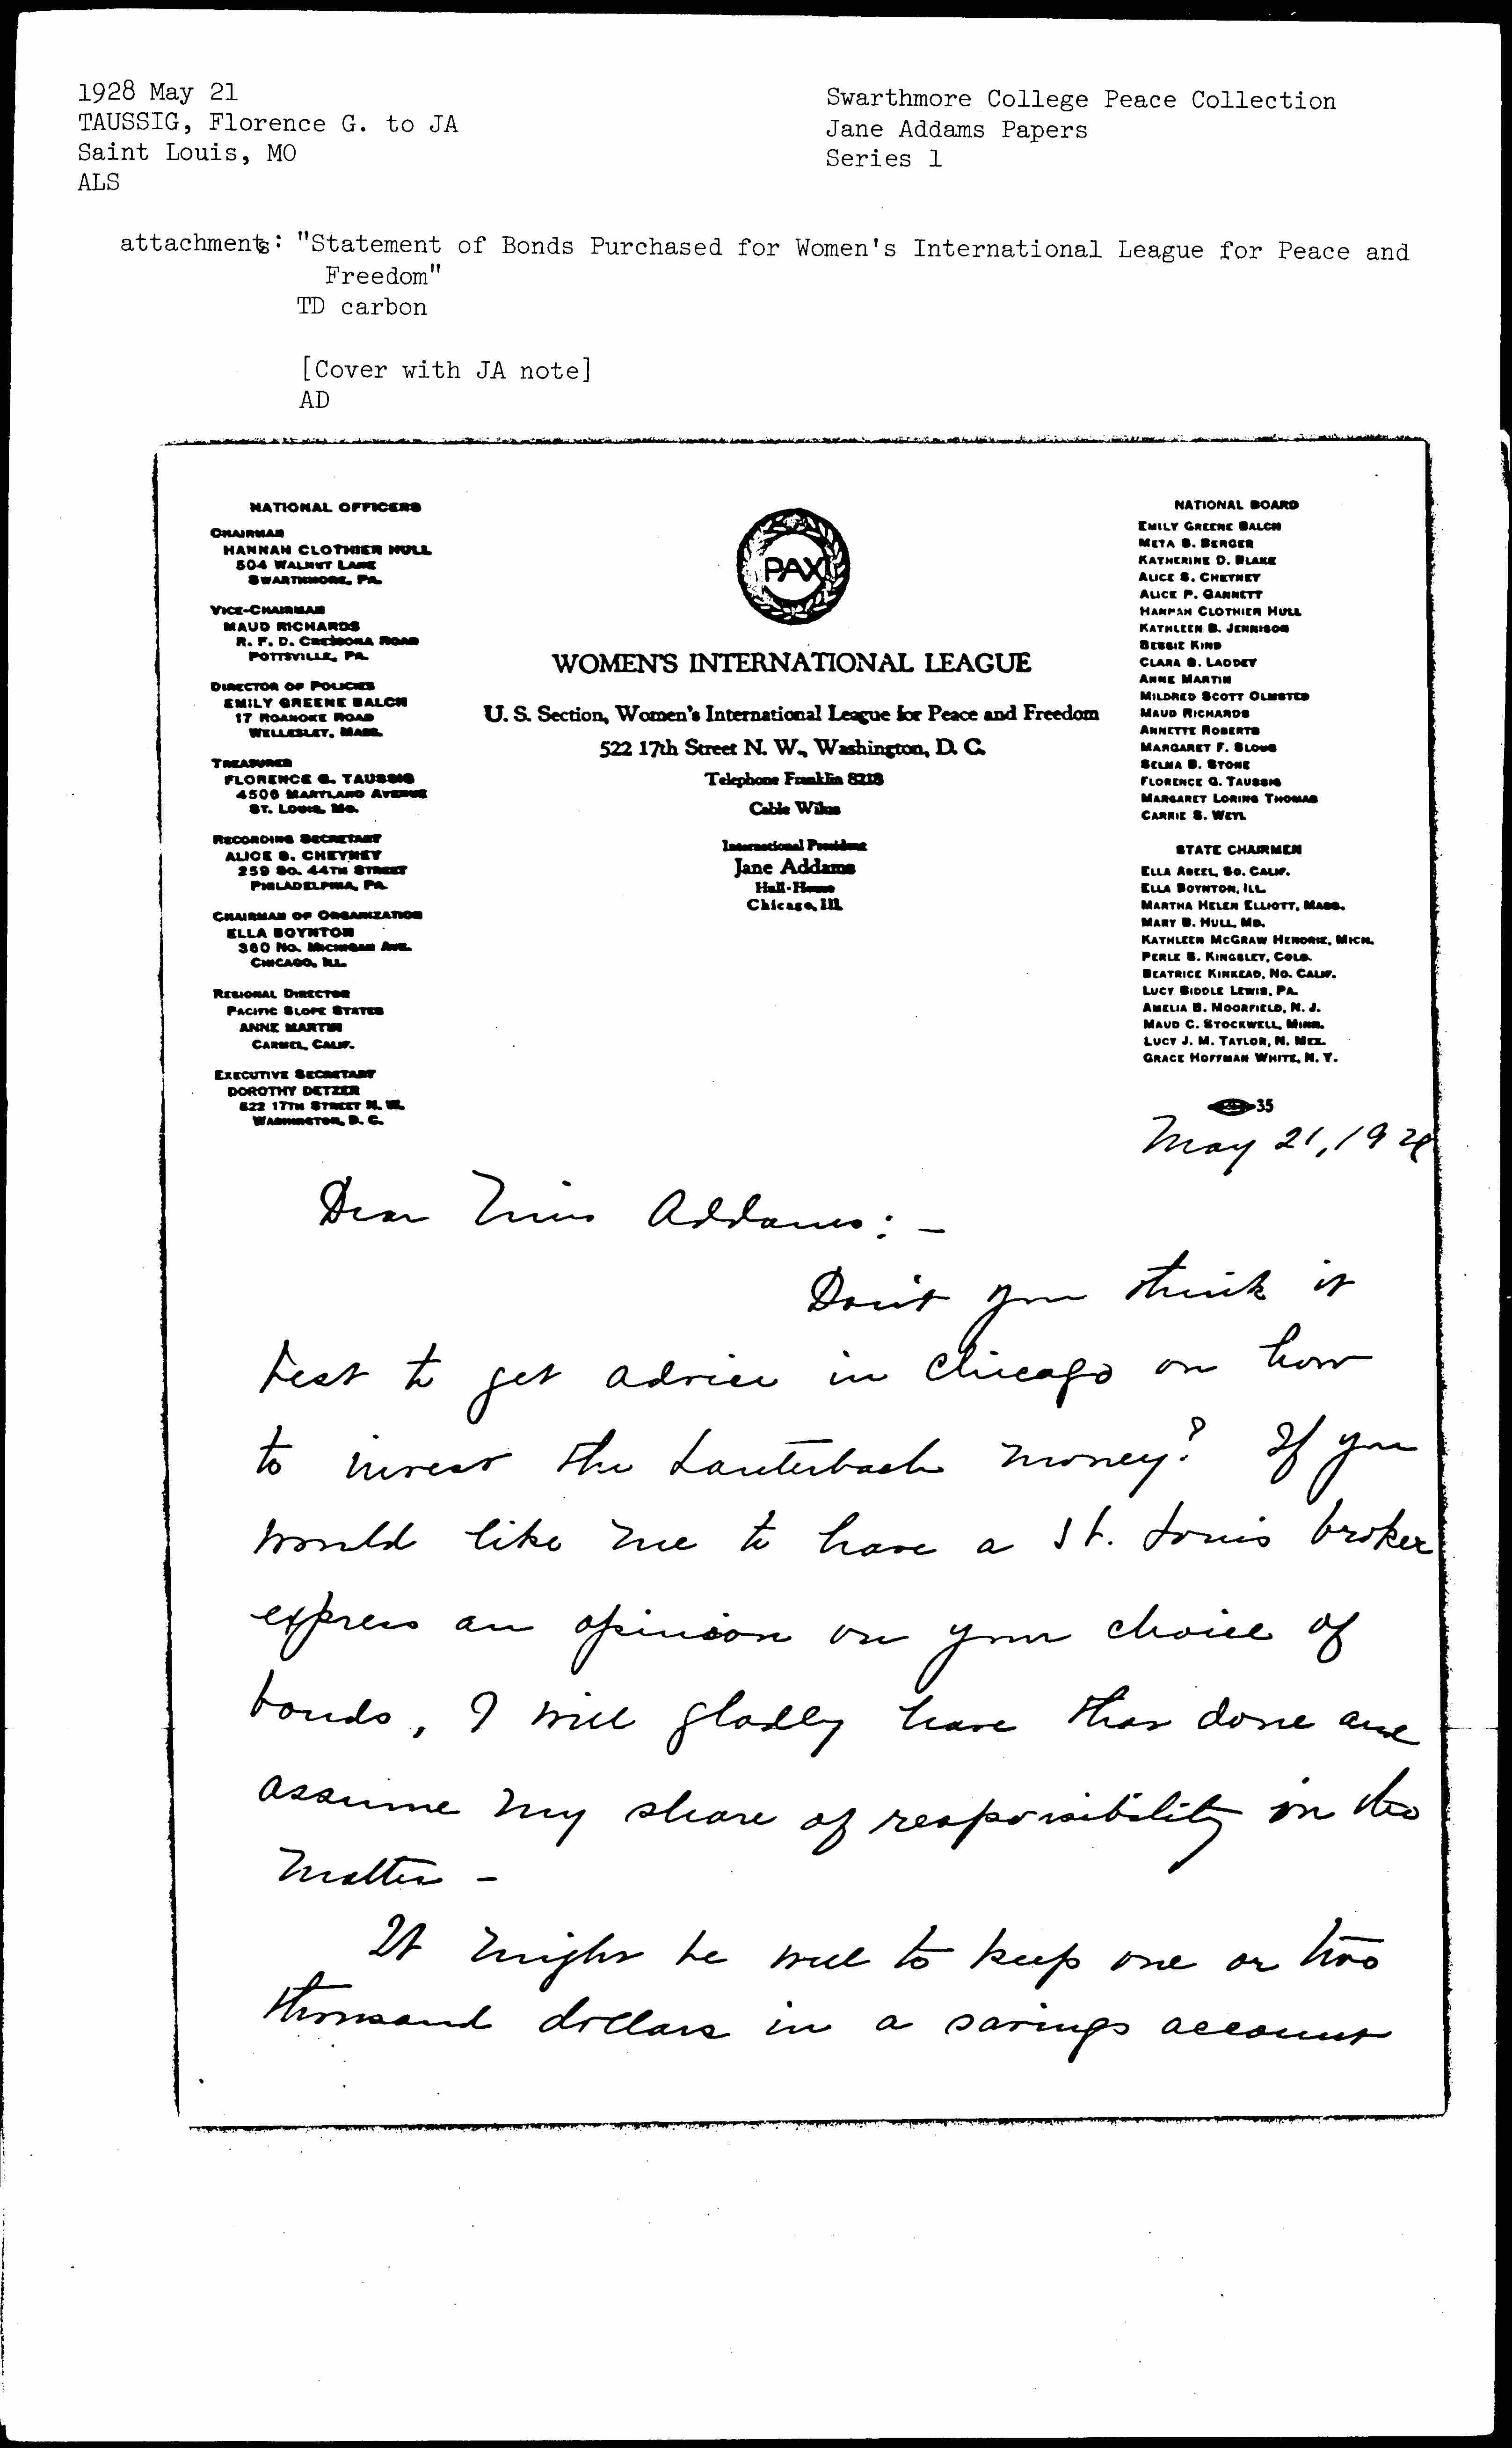 1928 May 21
TAUSSIG, Florence G. to JA
Saint Louis, MO
ALS
Swarthmore College Peace Collection
Jane Addams Papers
Series 1
attachments: "Statement of Bonds Purchased for Women's International League for Peace and
Freedom"
TD carbon
[Cover with JA note]
AD
NATIONAL OFFICERS
CHAIRMAN
HANNAH CLOTHIER HULL
504 WALNUT LANE
SWARTHMORE, PA.
VICE-CHAIRMAN
MAUD RICHARDS
R. F. D. CRESSONA ROAD
POTTSVILLE, PA.
DIRECTOR OF POLICIES
EMILY GREENE BALCH
17 ROANOKE ROAD
WELLESLEY, MASS.
TREASURER
FLORENCE G. TAUSSIG
4506 MARYLAND AVENUE
ST. LOUIS, MO.
RECORDING SECRETARY
ALICE S. CHEYNEY
259 SO. 44TH STREET
PHILADELPHIA, PA.
CHAIRMAN OF ORGANIZATION
ELLA BOYNTON
360 NO. MICHIGAN AVE.
CHICAGO, ILL.
REGIONAL DIRECTOR
PACIFIC SLOPE STATES
ANNE MARTIN
CARMEL, CALIF.
EXECUTIVE SECRETARY
DOROTHY DETZER
522 17TH STREET N. W.
WASHINGTON, D. C.
PAX
WOMEN'S INTERNATIONAL LEAGUE
U. S. Section, Women's International League for Peace and Freedom
522 17th Street N. W., Washington, D. C.
Telephone Franklin 8218
Cable Wilus
International President
Jane Addams
Hull-House
Chicago, Ill.
NATIONAL BOARD
EMILY GREENE BALCH
META S. BERGER
KATHERINE D. BLAKE
ALICE S. CHEYNEY
ALICE P. GANNETT
HANNAH CLOTHIER HULL
KATHLEEN B. JENNISON
BESSIE KIND
CLARA S. LADDEY
ANNE MARTIN
MILDRED SCOTT OLMSTED
MAUD RICHARDS
ANNETTE ROBERTS
MARGARET F. SLOUS
SELMA B. STONE
FLORENCE G. TAUSSIG
MARGARET LORING THOMAS
CARRIE S. WEYL
STATE CHAIRMEN
ELLA ABEEL, SO. CALIF.
ELLA BOYNTON, ILL.
MARTHA HELEN ELLIOTT, MASS.
MARY B. HULL, MD.
KATHLEEN MCGRAW HENDRIE, MICH.
PERLE S. KINGSLEY, COLO.
BEATRICE KINKEAD, NO. CALIF.
LUCY BIDDLE LEWIS, PA.
AMELIA B. MOORFIELD, N. J.
MAUD C. STOCKWELL, MINN.
LUCY J. M. TAYLOR, N. MEX.
GRACE HOFFMAN WHITE, N. Y.
35
May 21, 1928
Dear Miss Addams: -
Don't you think it
best to get advice in Chicago on how
to invest the Lauterbach money? If you
would like me to have a St. Louis broker
express an opinion on your choice of
bonds, I will gladly have that done and
assume my share of responsibility in the
matter -
It might be well to keep one or two
thousand dollars in a savings account